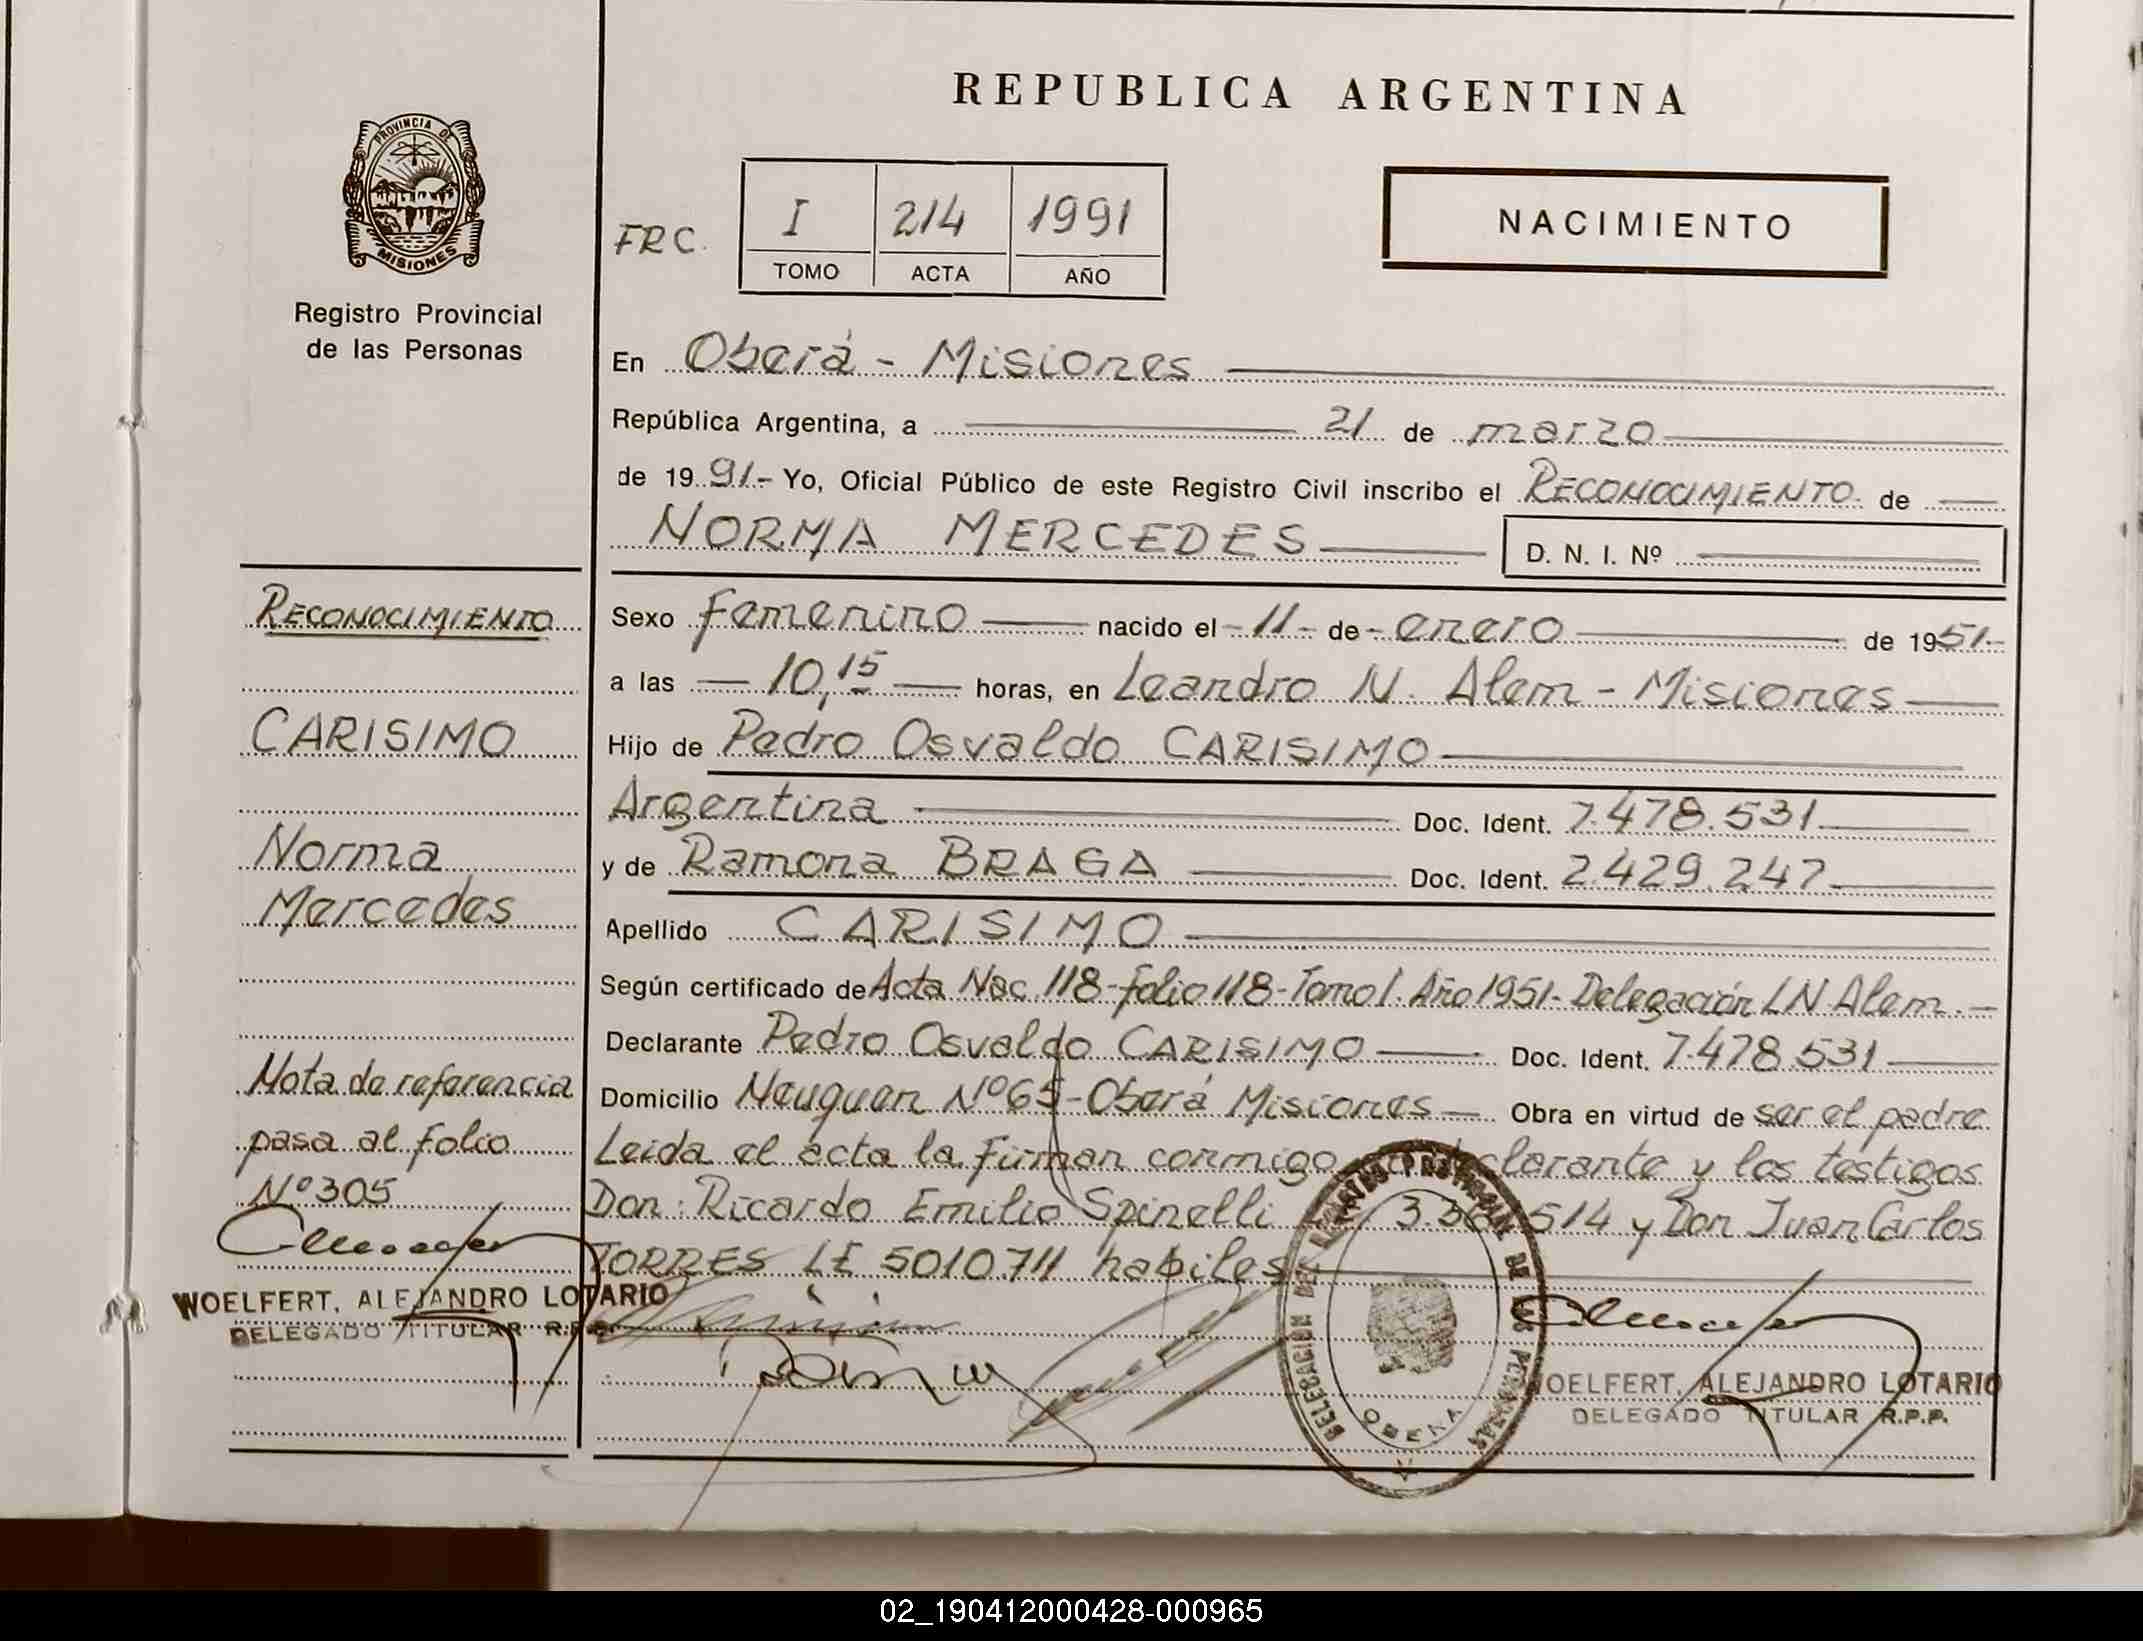 REPUBLICA ARGENTINA
PROVINCIA DE
MISIONES
Registro Provincial
de las Personas
FRC.
I 214 1991
TOMO ACTA AÑO
NACIMIENTO
En Oberá - Misiones
República Argentina, a 21 de marzo
de 1991.- Yo, Oficial Público de este Registro Civil inscribo el RECONOCIMIENTO de
NORMA MERCEDES
D. N. I. Nº
RECONOCIMIENTO
CARISIMO
Norma
Mercedes
Nota de referencia
pasa al folio
Nº 305
WOELFERT, ALEJANDRO LOTARIO
DELEGADO TITULAR R.P.P.
Sexo Femenino nacido el - 11 - de - enero de 1951.-
a las 10,15 horas, en Leandro N. Alem - Misiones
Hijo de Pedro Osvaldo CARISIMO
Argentina Doc. Ident. 7.478.531
y de Ramona BRAGA Doc. Ident. 2.429.247
Apellido CARISIMO
Según certificado de Acta Nac. 118 - folio 118 - Tomo I. Año 1951. Delegación LN Alem.-
Declarante Pedro Osvaldo CARISIMO Doc. Ident. 7.478.531
Domicilio Neuquen Nº 65 - Oberá Misiones Obra en virtud de ser el padre
Leida el acta la firman conmigo clarante y los testigos
Don: Ricardo Emilio Spinelli 514 y Don Juan Carlos
TORRES LE 5010.711 habiles
DELEGACION DEL REGISTRO PROVINCIAL DE LAS PERSONAS
OBERA
WOELFERT, ALEJANDRO LOTARIO
DELEGADO TITULAR R.P.P.
02_190412000428-000965